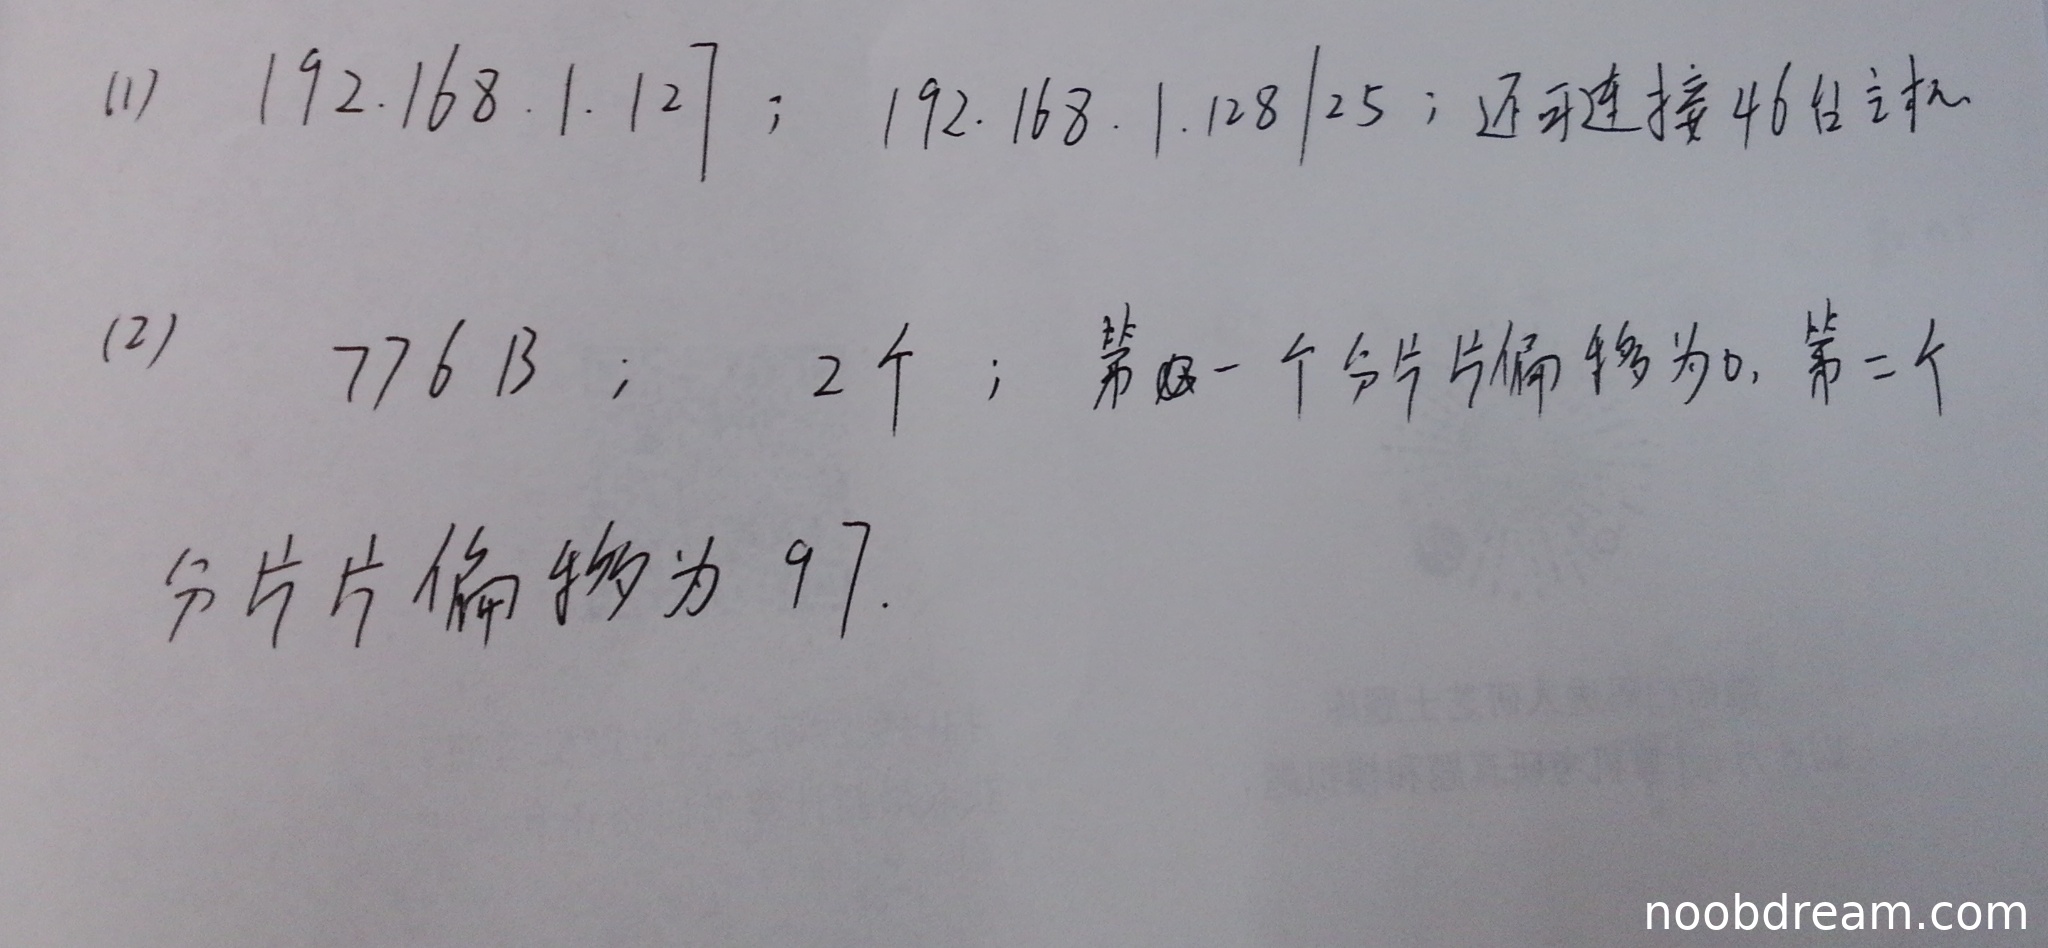 (1) 192.168.1.127; 192.168.1.128/25; 还可连接46台主机
(2) 776B; 2个; 第一个分片片偏移为0,第二个
分片片偏移为97.
noobdream.com